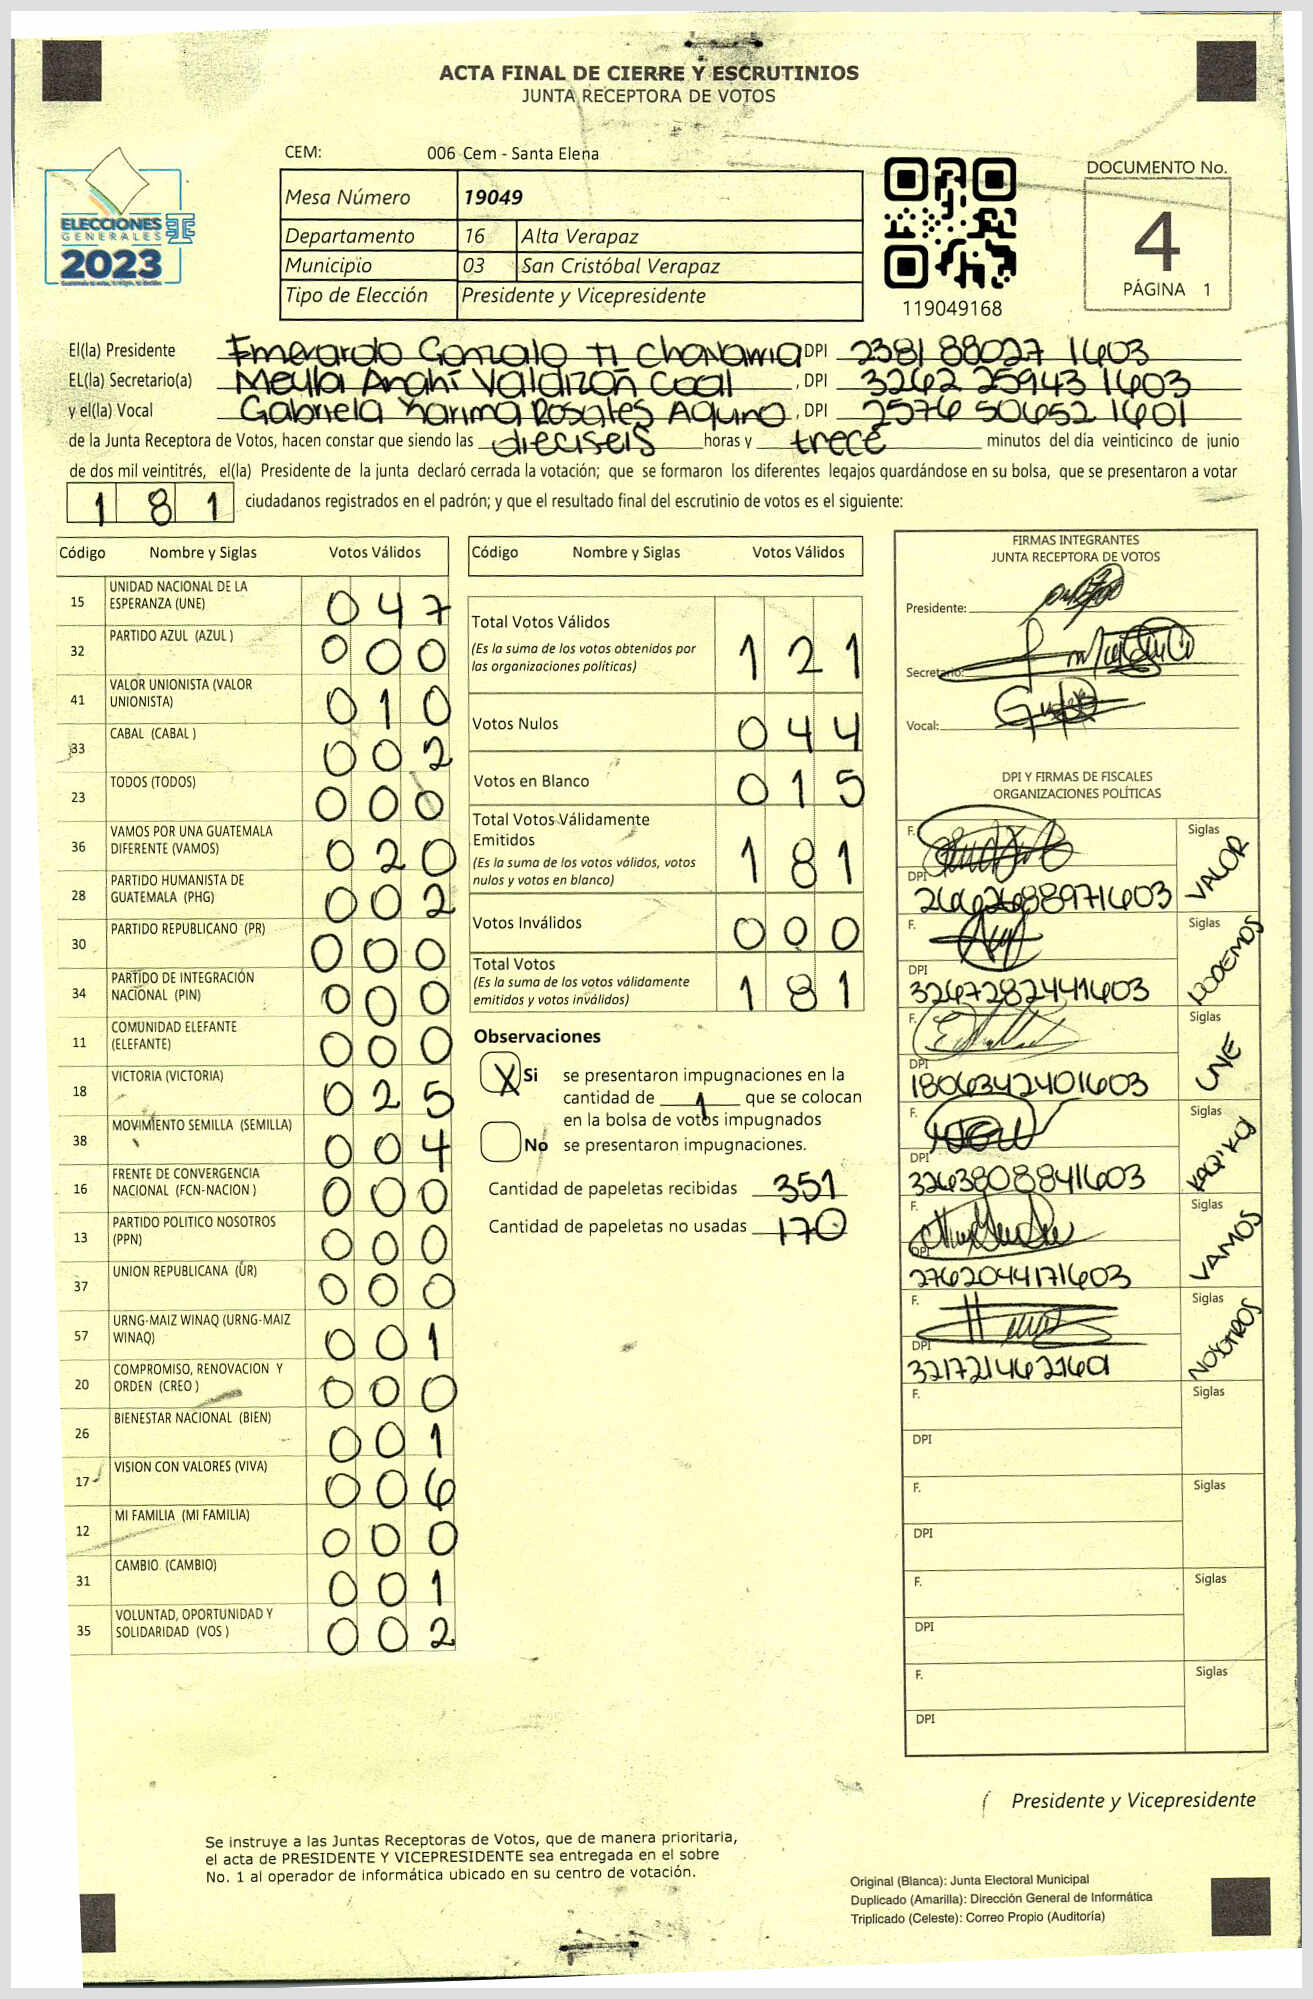 ACTA FINAL DE CIERRE Y ESCRUTINIOS
JUNTA RECEPTORA DE VOTOS
CEM: 006 Cem - Santa Elena
DOCUMENTO No.
4
PÁGINA 1
ELECCIONES
GENERALES
2023
Mesa Número 19049
Departamento 16 Alta Verapaz
Municipio 03 San Cristóbal Verapaz
Tipo de Elección Presidente y Vicepresidente
119049168
El(la) Presidente Emerardo Gonzalo Ti Chonamia DPI 2381 88027 1603
EL(la) Secretario(a) Meylla Anahí Valdizón Caal , DPI 3262 25943 1603
y el(la) Vocal Gabriela Karima Rosales Aquino , DPI 2576 50652 1601
de la Junta Receptora de Votos, hacen constar que siendo las dieciseis horas y trece minutos del día veinticinco de junio
de dos mil veintitrés, el(la) Presidente de la junta declaró cerrada la votación; que se formaron los diferentes legajos quardándose en su bolsa, que se presentaron a votar
1 8 1 ciudadanos registrados en el padrón; y que el resultado final del escrutinio de votos es el siguiente:
Código Nombre y Siglas Votos Válidos
15 UNIDAD NACIONAL DE LA ESPERANZA (UNE) 0 4 7
32 PARTIDO AZUL (AZUL ) 0 0 0
41 VALOR UNIONISTA (VALOR UNIONISTA) 0 1 0
33 CABAL (CABAL ) 0 0 2
23 TODOS (TODOS) 0 0 0
36 VAMOS POR UNA GUATEMALA DIFERENTE (VAMOS) 0 2 0
28 PARTIDO HUMANISTA DE GUATEMALA (PHG) 0 0 2
30 PARTIDO REPUBLICANO (PR) 0 0 0
34 PARTIDO DE INTEGRACIÓN NACIONAL (PIN) 0 0 0
11 COMUNIDAD ELEFANTE (ELEFANTE) 0 0 0
18 VICTORIA (VICTORIA) 0 2 5
38 MOVIMIENTO SEMILLA (SEMILLA) 0 0 4
16 FRENTE DE CONVERGENCIA NACIONAL (FCN-NACION ) 0 0 0
13 PARTIDO POLITICO NOSOTROS (PPN) 0 0 0
37 UNION REPUBLICANA (UR) 0 0 0
57 URNG-MAIZ WINAQ (URNG-MAIZ WINAQ) 0 0 1
20 COMPROMISO, RENOVACION Y ORDEN (CREO ) 0 0 0
26 BIENESTAR NACIONAL (BIEN) 0 0 1
17 VISION CON VALORES (VIVA) 0 0 6
12 MI FAMILIA (MI FAMILIA) 0 0 0
31 CAMBIO (CAMBIO) 0 0 1
35 VOLUNTAD, OPORTUNIDAD Y SOLIDARIDAD (VOS ) 0 0 2
Código Nombre y Siglas Votos Válidos
Total Votos Válidos 1 2 1
(Es la suma de los votos obtenidos por
las organizaciones políticas)
Votos Nulos 0 4 4
Votos en Blanco 0 1 5
Total Votos Válidamente
Emitidos 1 8 1
(Es la suma de los votos válidos, votos
nulos y votos en blanco)
Votos Inválidos 0 0 0
Total Votos 1 8 1
(Es la suma de los votos válidamente
emitidos y votos inválidos)
Observaciones
X Si se presentaron impugnaciones en la
cantidad de 1 que se colocan
en la bolsa de votos impugnados
No se presentaron impugnaciones.
Cantidad de papeletas recibidas 351
Cantidad de papeletas no usadas 170
FIRMAS INTEGRANTES
JUNTA RECEPTORA DE VOTOS
Presidente:
Secretario:
Vocal:
DPI Y FIRMAS DE FISCALES
ORGANIZACIONES POLÍTICAS
F. Siglas VALOR
DPI
F. Siglas PODEMOS
DPI 3267282441603
F. Siglas UNE
DPI 1806342401603
F. Siglas
DPI 3263808841603
F. Siglas VAMOS
DPI 2762044171603
F. Siglas NOSOTROS
DPI
F. Siglas
DPI
F. Siglas
DPI
F. Siglas
DPI
F. Siglas
DPI
Presidente y Vicepresidente
Se instruye a las Juntas Receptoras de Votos, que de manera prioritaria,
el acta de PRESIDENTE Y VICEPRESIDENTE sea entregada en el sobre
No. 1 al operador de informática ubicado en su centro de votación.
Original (Blanca): Junta Electoral Municipal
Duplicado (Amarilla): Dirección General de Informática
Triplicado (Celeste): Correo Propio (Auditoría)